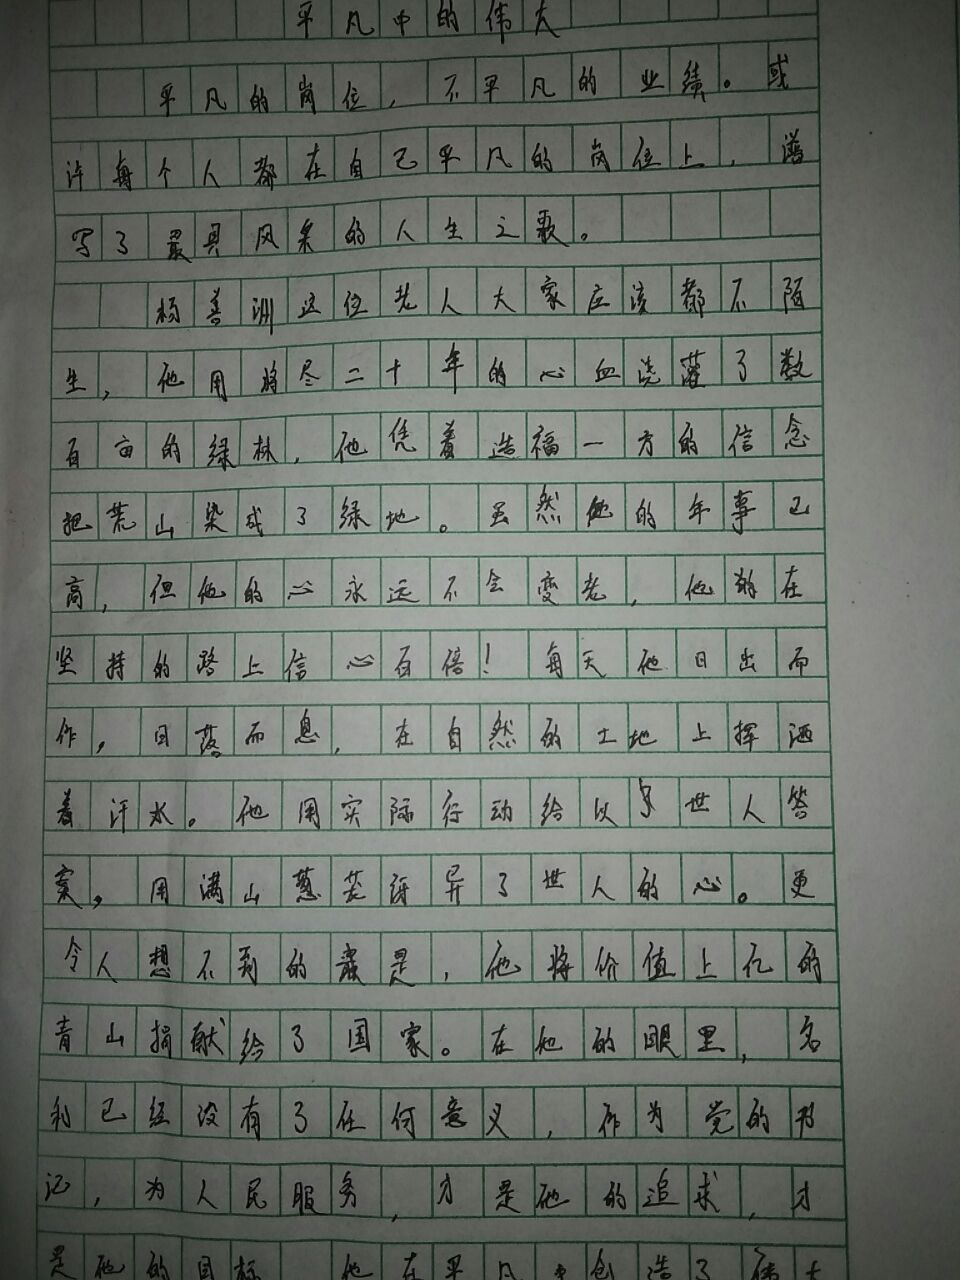 平凡中的伟大
平凡的岗位，不平凡的业绩。或
许每个人都在自己平凡的岗位上，谱
写了最具风采的人生之歌。
杨善洲这位老人大家应该都不陌
生，他用将尽二十年的心血浇灌了数
百亩的绿林，他凭着造福一方的信念
把荒山染成了绿地。虽然他的年事已
高，但他的心永远不会变老，他的在
坚持的路上信心百倍！每天他日出而
作，日落而息，在自然的土地上挥洒
着汗水。他用实际行动给以世人答
案，用满山葱茏讶异了世人的心。更
令人想不到的最是，他将价值上亿的
青山捐献给了国家。在他的眼里，名
利已经没有了任何意义，作为党的书
记，为人民服务，才是他的追求，才
是他的目标 他在平凡中创造了伟大